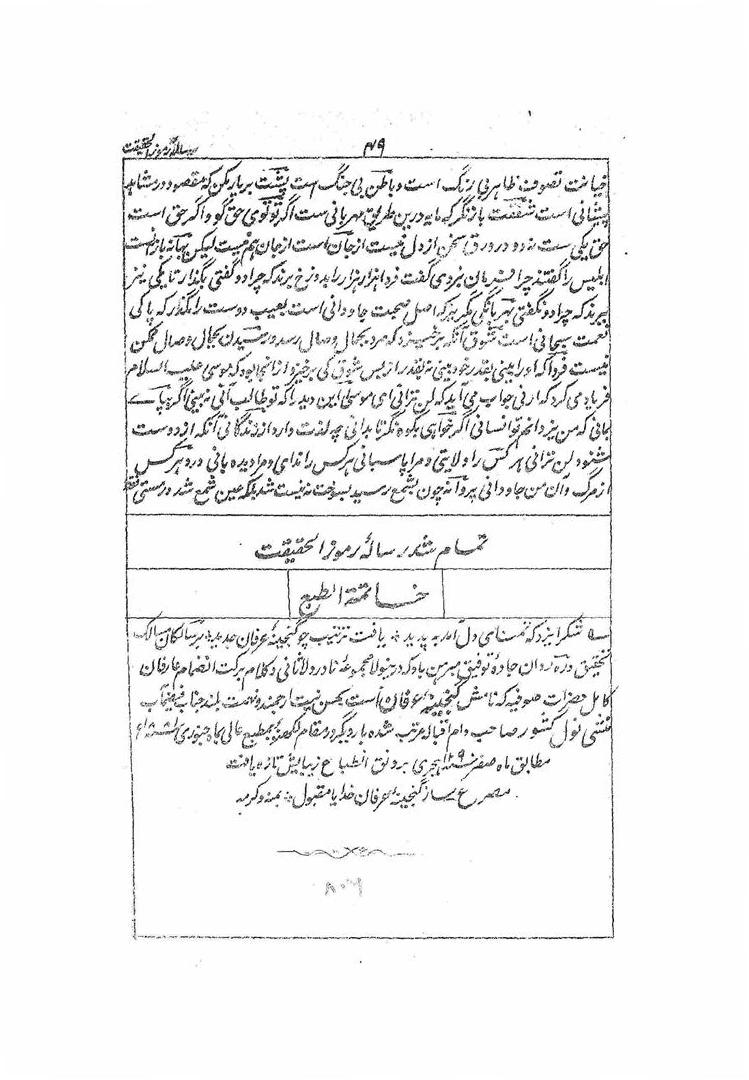 رسالهٔ رموز الحقیقت
۴۹
تصوف ظاهر بی رنگ است و باطن بی جنگ است پشت بر یار مکن که مقصود در مشاهد
پیشانی است شفقت باز نگر که مایه درین طریق مهربانی ست اگر تو توی حق گو و اگر حق است
حق یکی ست نه دو در ورق سخن از دل نیست از جان است از جان هم نیست لیکن بهانه بازانست
ابلیس را گفتند چرا فرمان نبردی گفت فردا هزار هزار را بدوزخ برند که چرا دو گفتی بگذار تا یکی نیز
ببرند که چرا دو نگفتی اصل صحبت جاودانی است بعیب دوست را مگذار که پاکی
نعمت سبحانی است شوق آنکه برخیزد که مرد بجمال وصال رسد و رسیدن بجمال وصال ممکن
نیست فردا که او را بینی بقدر خود بینی نه بقدر او پس شوق کی برخیزد و از انجا بود که موسی علیه السلام
فریاد می کرد که ارنی جواب می آید که لن ترانی ای موسی این دید را که تو طالب آنی نه بینی اگر چه پاک
جانی که من یزدانم تو انسانی اگر خواهی بکوه نگر تا بدانی چه لذت دارد از زندگانی آنکه از دوست
شنود لن ترانی هر کس را ولایتی و مرا پاسبانی هر کس را ندای و مرا دیده بانی درد هر کس
از مرگ و آن من جاودانی پروانه چون بشمع رسید بسوخت نه نیست شد بلکه عین شمع شد در مستی فقط
تمام شد رسالهٔ رموز الحقیقت
خاتمة الطبع
شکر ایزد که تمنای دل آمد به پدید ؞ یافت ترتیب چو گنجینهٔ عرفان جدید ؞ بر سالکان مسالک
تحقیق و ره روان جادهٔ توفیق مبرهن باد که درینولا مجموعهٔ نادر و لاثانی و کلام برکت انضمام عارفان
کامل حضرات صوفیه که نامش گنجینهٔ عرفان است بحسن نیت ارجمند و همت بلند جناب فیضمآب
منشی نول کشور صاحب دام اقباله مرتب شده بار دیگر در مقام لکهنؤ بمطبع عالی بماه جنوری ۱۸۸۱ع
مطابق ماه صفر ۱۲۹ هجری برونق انطباع زیبایش تازه یافت
مصرع ساز گنجینهٔ عرفان خدایا مقبول ؞ بمنه و کرمه
۳۰۸